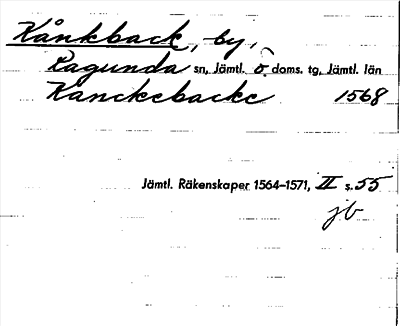 Kånkback, by,
Ragunda sn, Jämtl. ö. doms. tg, Jämtl. län
Kanckebacke 1568
Jämtl. Räkenskaper 1564–1571, II s. 55
jb